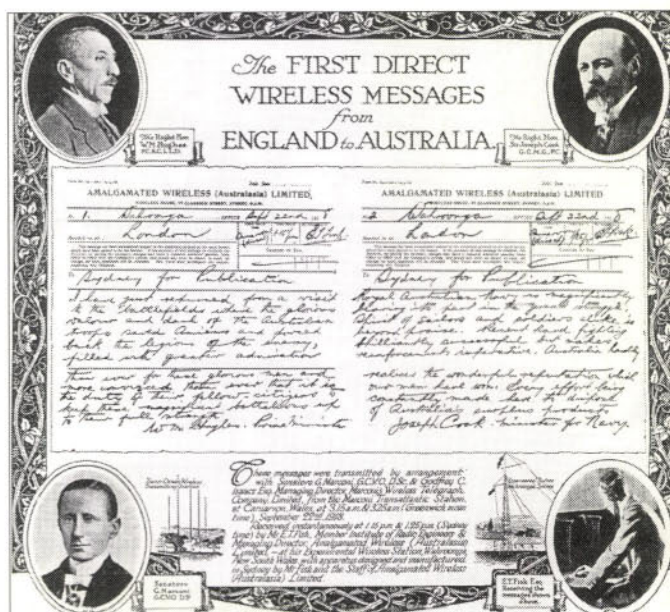 The FIRST DIRECT
WIRELESS MESSAGES
from
ENGLAND to AUSTRALIA.
The Right Hon.
W.M. Hughes
P.C. K.C. L.L.D.
The Right Hon.
Sir Joseph Cook
G.C.M.G., P.C.
AMALGAMATED WIRELESS (Australasia) LIMITED,
1. Wahroonga OFFICE Sept 22nd 1918
London
Sydney for Publication
I have just returned from a visit
to the battlefields where the glorious
valour and dash of the Australian
troops saved Amiens and forced
back the legions of the enemy,
filled with greater admiration
than ever for these glorious men and
more convinced than ever that it is
the duty of their fellow-citizens to
keep these magnificent battalions up
to their full strength.
W. M. Hughes. Prime Minister
AMALGAMATED WIRELESS (Australasia) LIMITED
2 Wahroonga OFFICE Sept 22nd 1918
London
To Sydney for Publication
Royal Australian Navy is magnificently
bearing its part in the great struggle.
Spirit of sailors and soldiers alike is
beyond praise. Recent hard fighting
brilliantly successful but makes
reinforcements imperative. Australia hardly
realises the wonderful reputation which
our men have won. Every effort being
constantly made here to dispose
of Australia's surplus products
Joseph Cook. Minister for Navy.
These messages were transmitted by arrangement
with Senatore G. Marconi, G.C.V.O., D.Sc. & Godfrey C.
Isaacs Esq. Managing Director, Marconi's Wireless Telegraph
Company, Limited, from the Marconi Transatlantic Station,
at Carnarvon, Wales, at 3.15 a.m. & 3.25 a.m. (Greenwich mean
time), September 22nd, 1918.
Received instantaneously at 1.15 p.m. & 1.25 p.m. (Sydney
time) by Mr. E.T. Fisk, Member Institute of Radio Engineers &
Managing Director, Amalgamated Wireless (Australasia)
Limited, - at his Experimental Wireless Station, Wahroonga,
New South Wales with apparatus designed and manufactured
in Sydney by Mr. Fisk and the Staff of Amalgamated Wireless
(Australasia) Limited.
Senatore
G. Marconi
G.C.V.O. D.Sc
E.T. Fisk Esq.
Receiving the
messages shown
above.